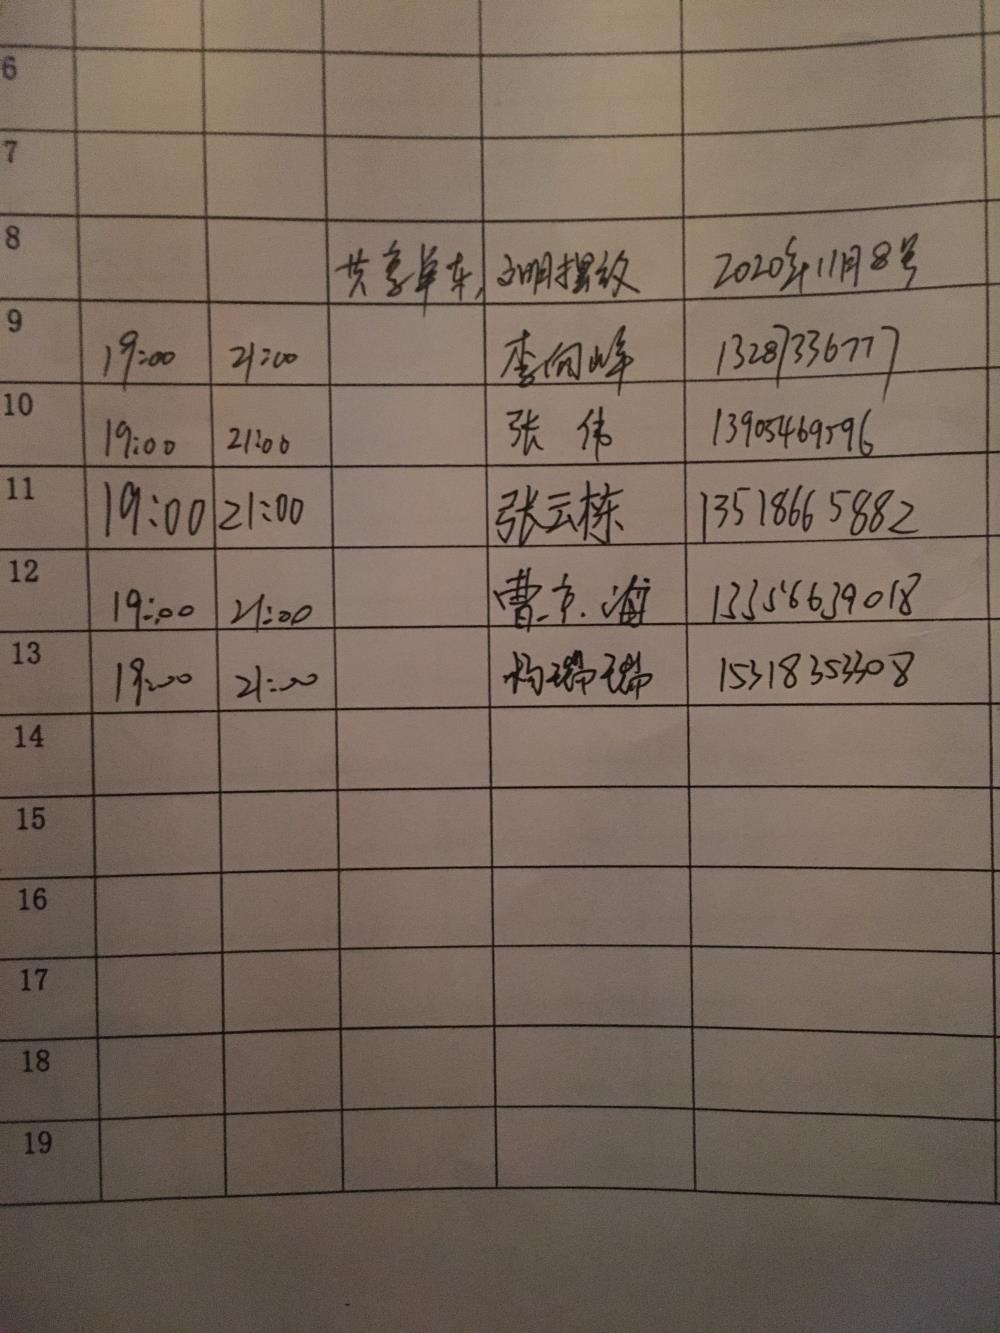 6
7
8 共享单车, 文明摆放 2020年11月8号
9 19:00 21:00 李向峰 13287336777
10 19:00 21:00 张 伟 13905469596
11 19:00 21:00 张云栋 13518665882
12 19:00 21:00 曹京海 13356639018
13 19:00 21:00 杨瑞瑞 15318353308
14
15
16
17
18
19